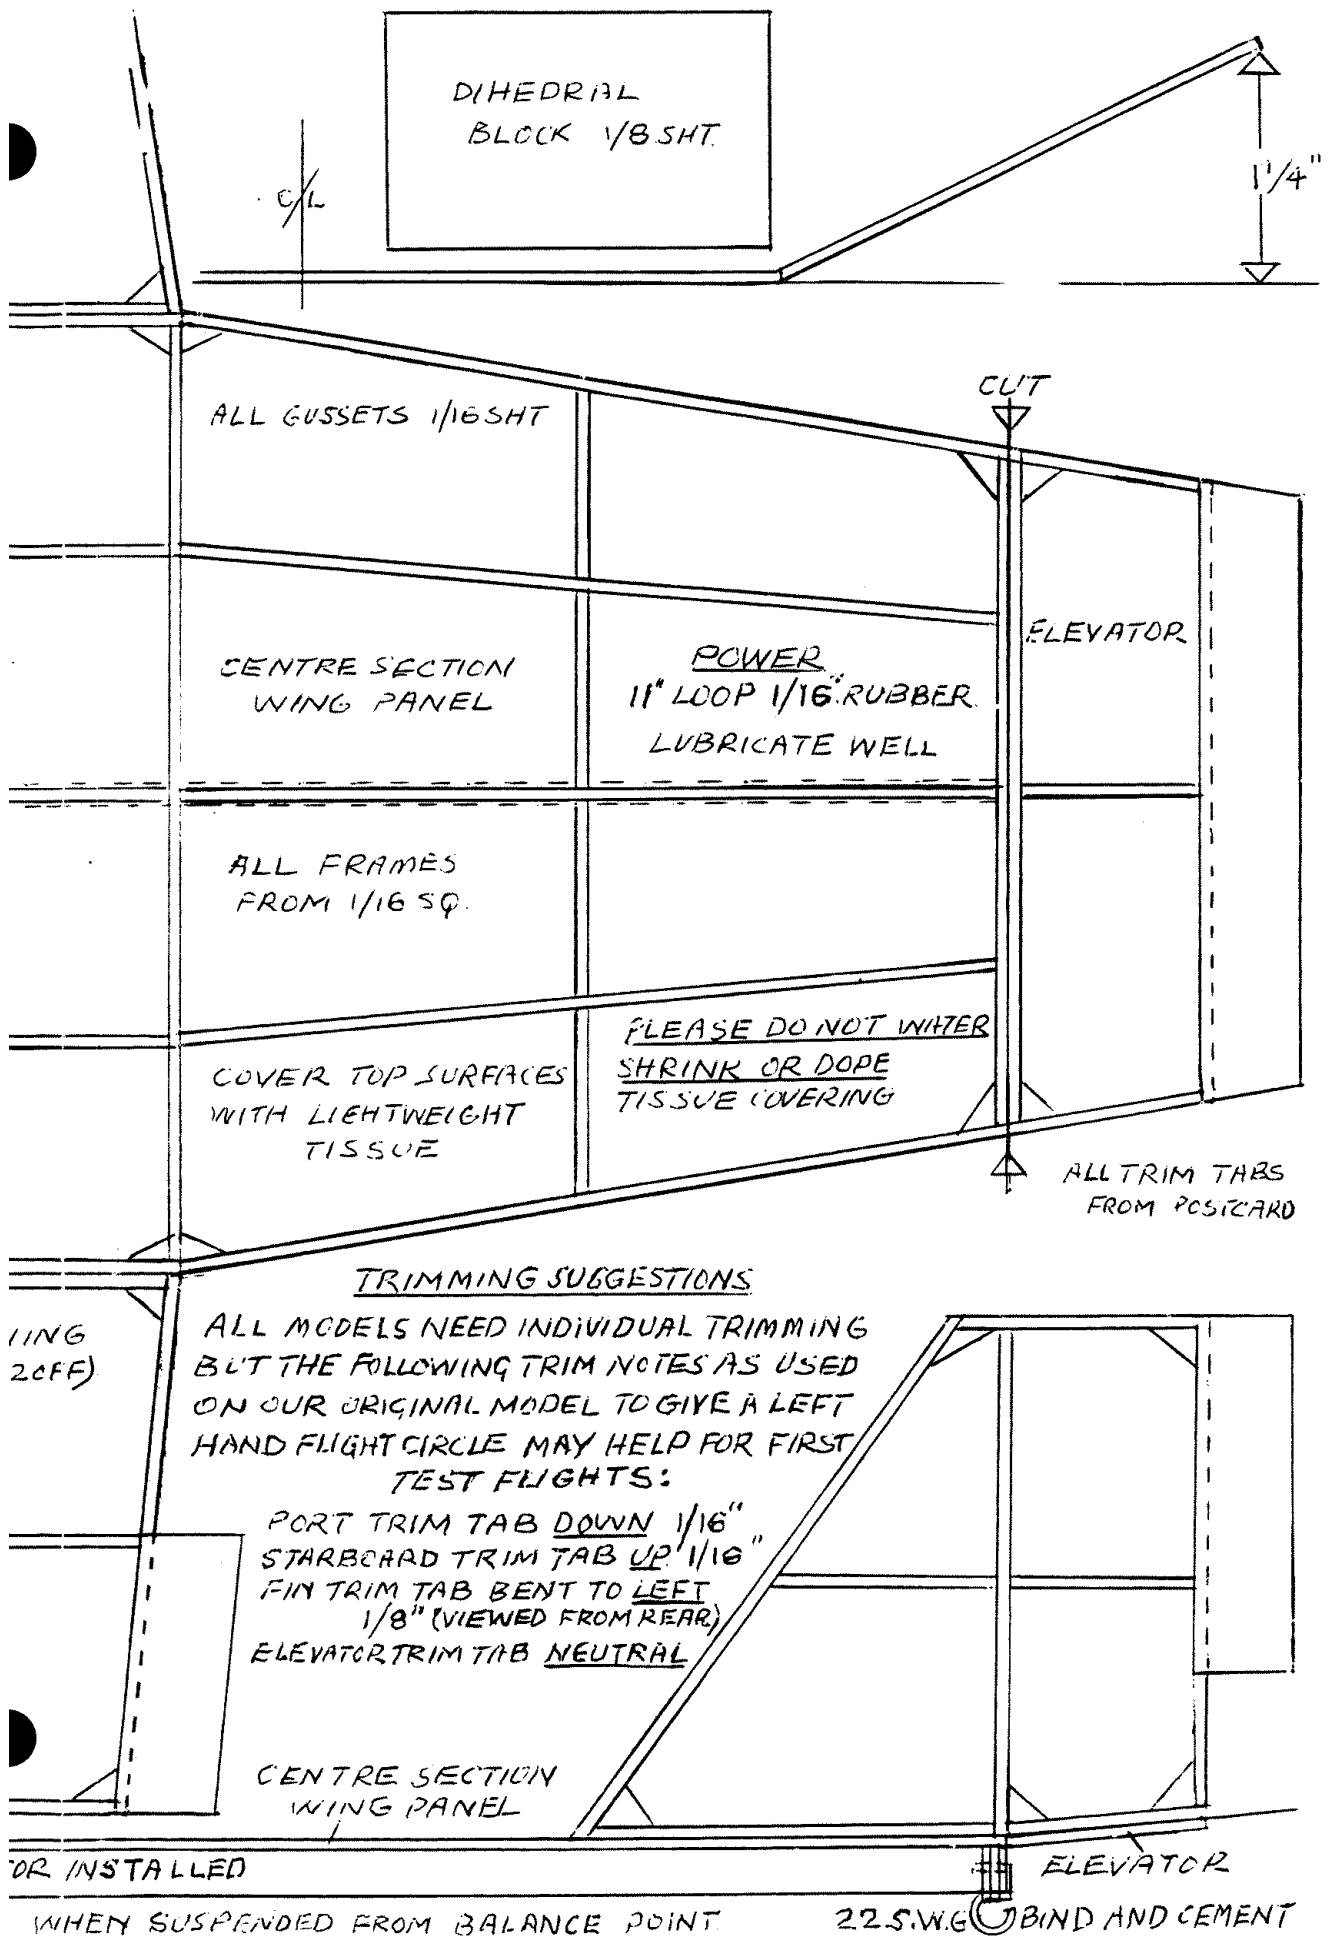 DIHEDRAL
BLOCK 1/8 SHT.
C/L
1 1/4"
CUT
ALL GUSSETS 1/16 SHT
ELEVATOR
CENTRE SECTION
WING PANEL
POWER
11" LOOP 1/16" RUBBER
LUBRICATE WELL
ALL FRAMES
FROM 1/16 SQ.
PLEASE DO NOT WATER
SHRINK OR DOPE
TISSUE COVERING
COVER TOP SURFACES
WITH LIGHTWEIGHT
TISSUE
ALL TRIM TABS
FROM POSTCARD
TRIMMING SUGGESTIONS
ALL MODELS NEED INDIVIDUAL TRIMMING
BUT THE FOLLOWING TRIM NOTES AS USED
ON OUR ORIGINAL MODEL TO GIVE A LEFT
HAND FLIGHT CIRCLE MAY HELP FOR FIRST
TEST FLIGHTS:
PORT TRIM TAB DOWN 1/16"
STARBOARD TRIM TAB UP 1/16"
FIN TRIM TAB BENT TO LEFT
1/8" (VIEWED FROM REAR)
ELEVATOR TRIM TAB NEUTRAL
ING
2 OFF)
CENTRE SECTION
WING PANEL
OR INSTALLED
ELEVATOR
WHEN SUSPENDED FROM BALANCE POINT
22 S.W.G BIND AND CEMENT